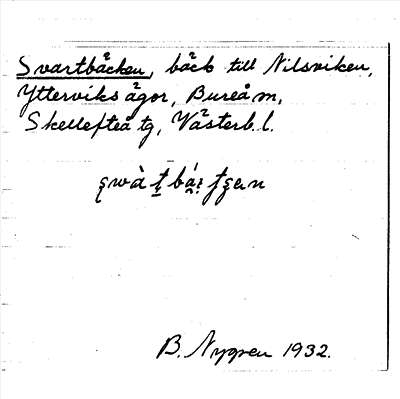 Svartbäcken, bäck till Nilsviken,
Ytterviks ägor, Bureå sn,
Skellefteå tg, Västerb. l.
B. Nygren 1932.